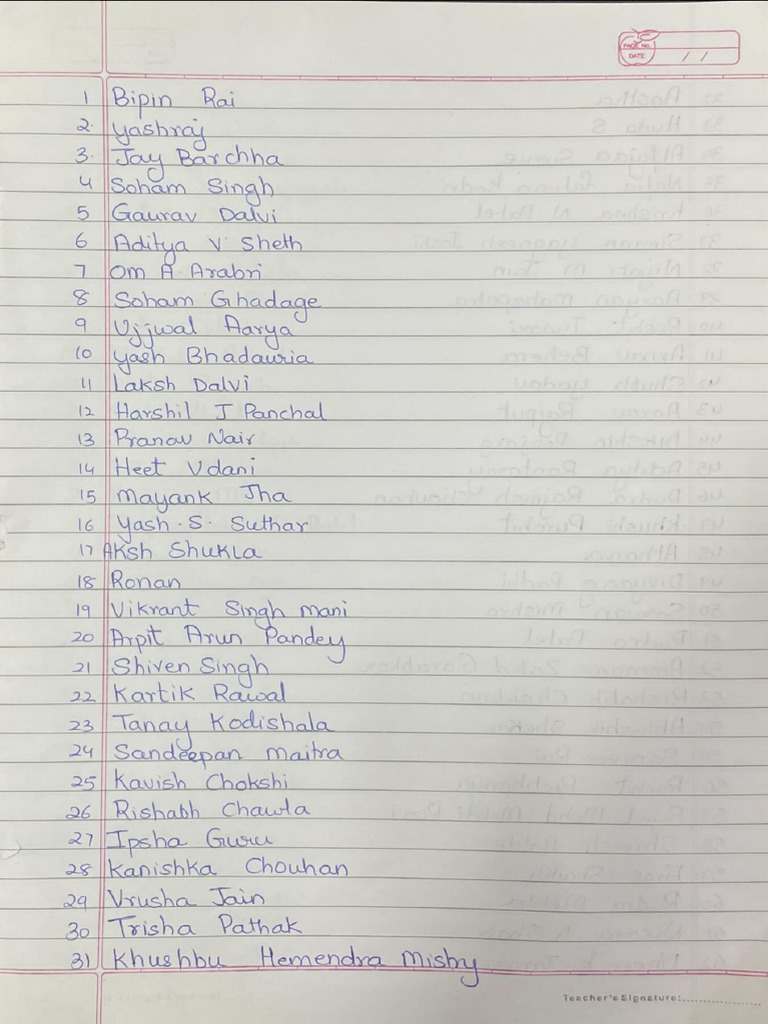 PAGE NO.
DATE / /
1 Bipin Rai
2. Yashraj
3. Jay Barchha
4 Soham Singh
5 Gaurav Dalvi
6 Aditya V Sheth
7 Om A Arabri
8 Soham Ghadage
9 Ujjwal Aarya
10 Yash Bhadauria
11 Laksh Dalvi
12 Harshil J Panchal
13 Pranav Nair
14 Heet Vdani
15 Mayank Jha
16 Yash .S. Suthar
17 Aksh Shukla
18 Ronan
19 Vikrant Singh Mani
20 Arpit Arun Pandey
21 Shiven Singh
22 Kartik Rawal
23 Tanay Kodishala
24 Sandeepan Maitra
25 Kavish Chokshi
26 Rishabh Chawla
27 Ipsha Guru
28 Kanishka Chouhan
29 Vrusha Jain
30 Trisha Pathak
31 Khushbu Hemendra Mistry
Teacher's Signature: